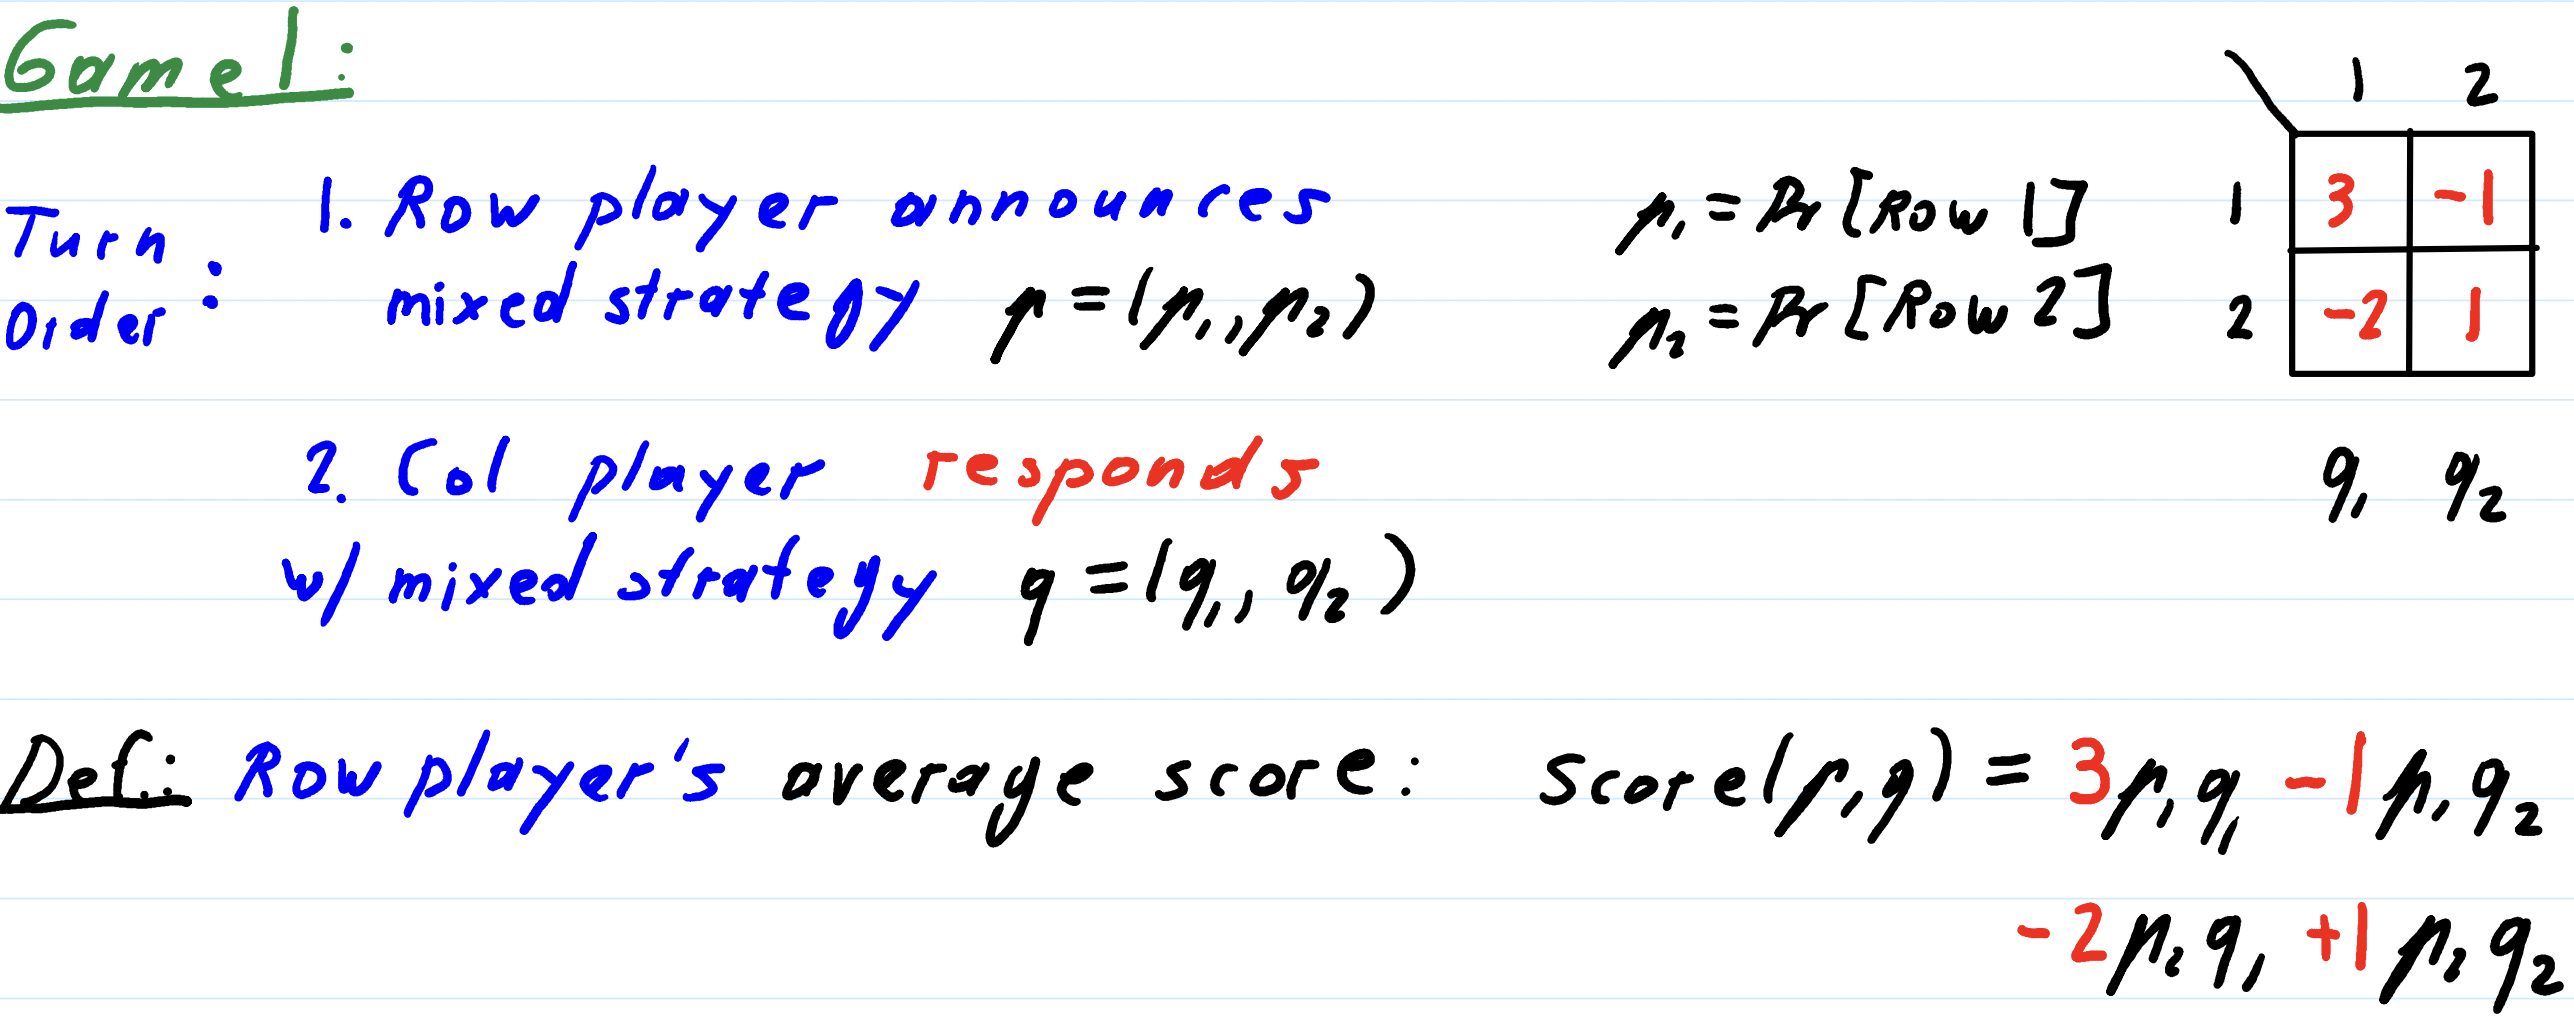 Game 1:
1 2
Turn Order: 1. Row player announces p₁ = Pr[Row 1] 1 3 -1
mixed strategy p = (p₁, p₂) p₂ = Pr[Row 2] 2 -2 1
2. Col player responds q₁ q₂
w/ mixed strategy q = (q₁, q₂)
Def: Row player's average score: score(p,q) = 3p₁q₁ -1p₁q₂
-2p₂q₁ +1p₂q₂